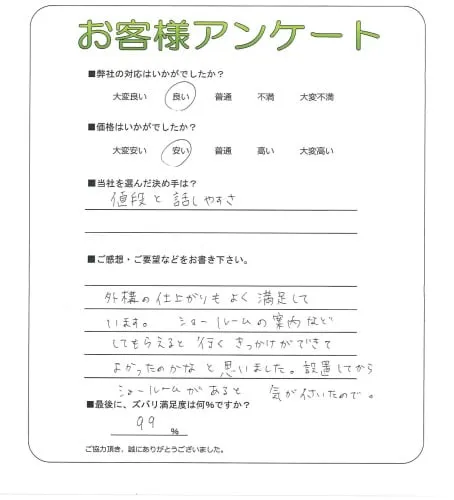 お客様アンケート
■弊社の対応はいかがでしたか？
大変良い 良い 普通 不満 大変不満
■価格はいかがでしたか？
大変安い 安い 普通 高い 大変高い
■当社を選んだ決め手は？
値段と話しやすさ
■ご感想・ご要望などをお書き下さい。
外構の仕上がりもよく満足して
います。 ショールームの案内など
してもらえると行くきっかけができて
よかったのかなと思いました。設置してから
ショールームがあると 気が付いたので。
■最後に、ズバリ満足度は何％ですか？
99 ％
ご協力頂き、誠にありがとうございました。